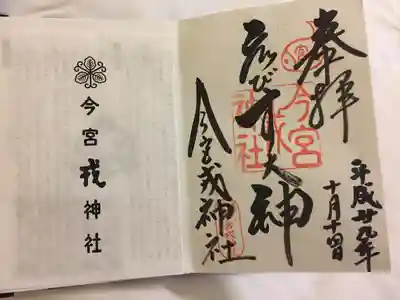 奉拝
平成廿九年
十月十四日
ゑびす大神
今宮戎神社
今宮
戎
神社
今宮戎神社